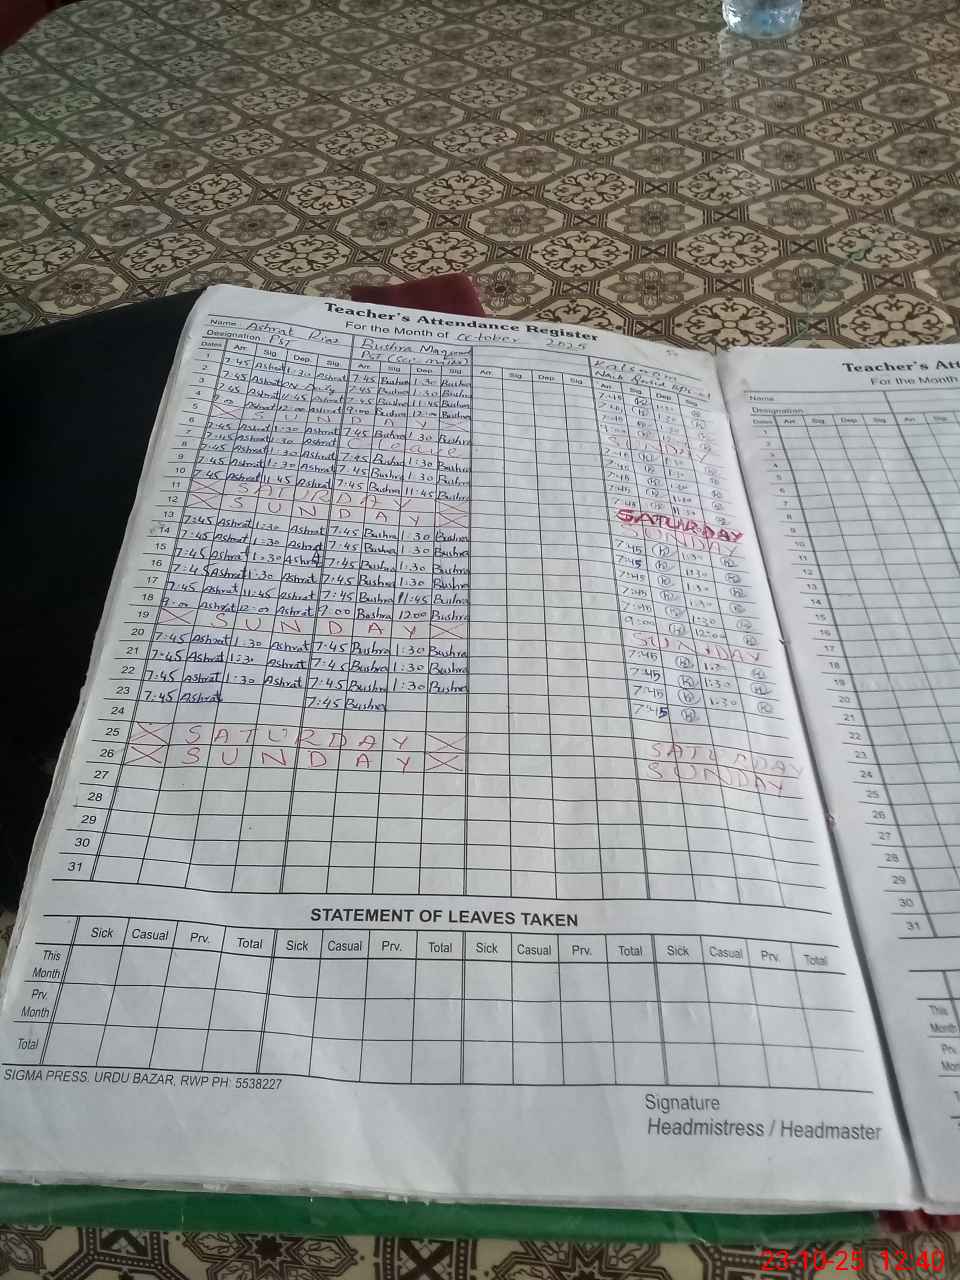 Teacher's Attendance Register
For the Month of October 2025
Name Ashrat Riaz Bushra Kalsoom
Designation PST PST
Dates Arr. Sig. Dep. Sig. Arr. Sig. Dep. Sig. Arr. Sig. Dep. Sig. Arr. Sig. Dep. Sig.
1 7:45 Ashrat 1:30 Ashrat 7:45 Bushra 1:30 Bushra 7:45 K 1:30 K
2 7:45 Ashrat On Duty 7:45 Bushra 1:30 Bushra 7:45 K 1:30 K
3 7:45 Ashrat 11:45 Ashrat 7:45 Bushra 11:45 Bushra 7:45 K
4 9:00 Ashrat 12:00 Ashrat 9:00 Bushra 12:00 Bushra K
5 SUNDAY SUNDAY
6 7:45 Ashrat 1:30 Ashrat 7:45 Bushra 1:30 Bushra 7:45 K 1:30 K
7 7:45 Ashrat 1:30 Ashrat C Leave 7:45 K 1:30 K
8 7:45 Ashrat 1:30 Ashrat 7:45 Bushra 1:30 Bushra 7:45 K 1:30 K
9 7:45 Ashrat 1:30 Ashrat 7:45 Bushra 1:30 Bushra 7:45 K K
10 7:45 Ashrat 11:45 Ashrat 7:45 Bushra 11:45 Bushra 7:45 K K
11 SATURDAY SATURDAY
12 SUNDAY SUNDAY
13 7:45 Ashrat 1:30 Ashrat 7:45 Bushra 1:30 Bushra 7:45 K 1:30 K
14 7:45 Ashrat 1:30 Ashrat 7:45 Bushra 1:30 Bushra 7:45 K 1:30 K
15 7:45 Ashrat 1:30 Ashrat 7:45 Bushra 1:30 Bushra 7:45 K 1:30 K
16 7:45 Ashrat 1:30 Ashrat 7:45 Bushra 1:30 Bushra 7:45 K 1:30 K
17 7:45 Ashrat 11:45 Ashrat 7:45 Bushra 11:45 Bushra 7:45 K 1:30 K
18 9:00 Ashrat 12:00 Ashrat 9:00 Bushra 12:00 Bushra 9:00 K 12:00 K
19 SUNDAY SUNDAY
20 7:45 Ashrat 1:30 Ashrat 7:45 Bushra 1:30 Bushra 7:45 K 1:30 K
21 7:45 Ashrat 1:30 Ashrat 7:45 Bushra 1:30 Bushra 7:45 K 1:30 K
22 7:45 Ashrat 1:30 Ashrat 7:45 Bushra 1:30 Bushra 7:45 K 1:30 K
23 7:45 Ashrat 7:45 Bushra 7:45 K
24
25 SATURDAY SATURDAY
26 SUNDAY SUNDAY
27
28
29
30
31
STATEMENT OF LEAVES TAKEN
Sick Casual Prv. Total Sick Casual Prv. Total Sick Casual Prv. Total Sick Casual Prv. Total
This Month
Prv. Month
Total
SIGMA PRESS, URDU BAZAR, RWP PH: 5538227
Signature
Headmistress / Headmaster
Teacher's Atten
For the Month
Name
Designation
Dates Arr. Sig. Dep. Sig. Arr. Sig.
1
2
3
4
5
6
7
8
9
10
11
12
13
14
15
16
17
18
19
20
21
22
23
24
25
26
27
28
29
30
31
This
Month
23-10-25 12:40